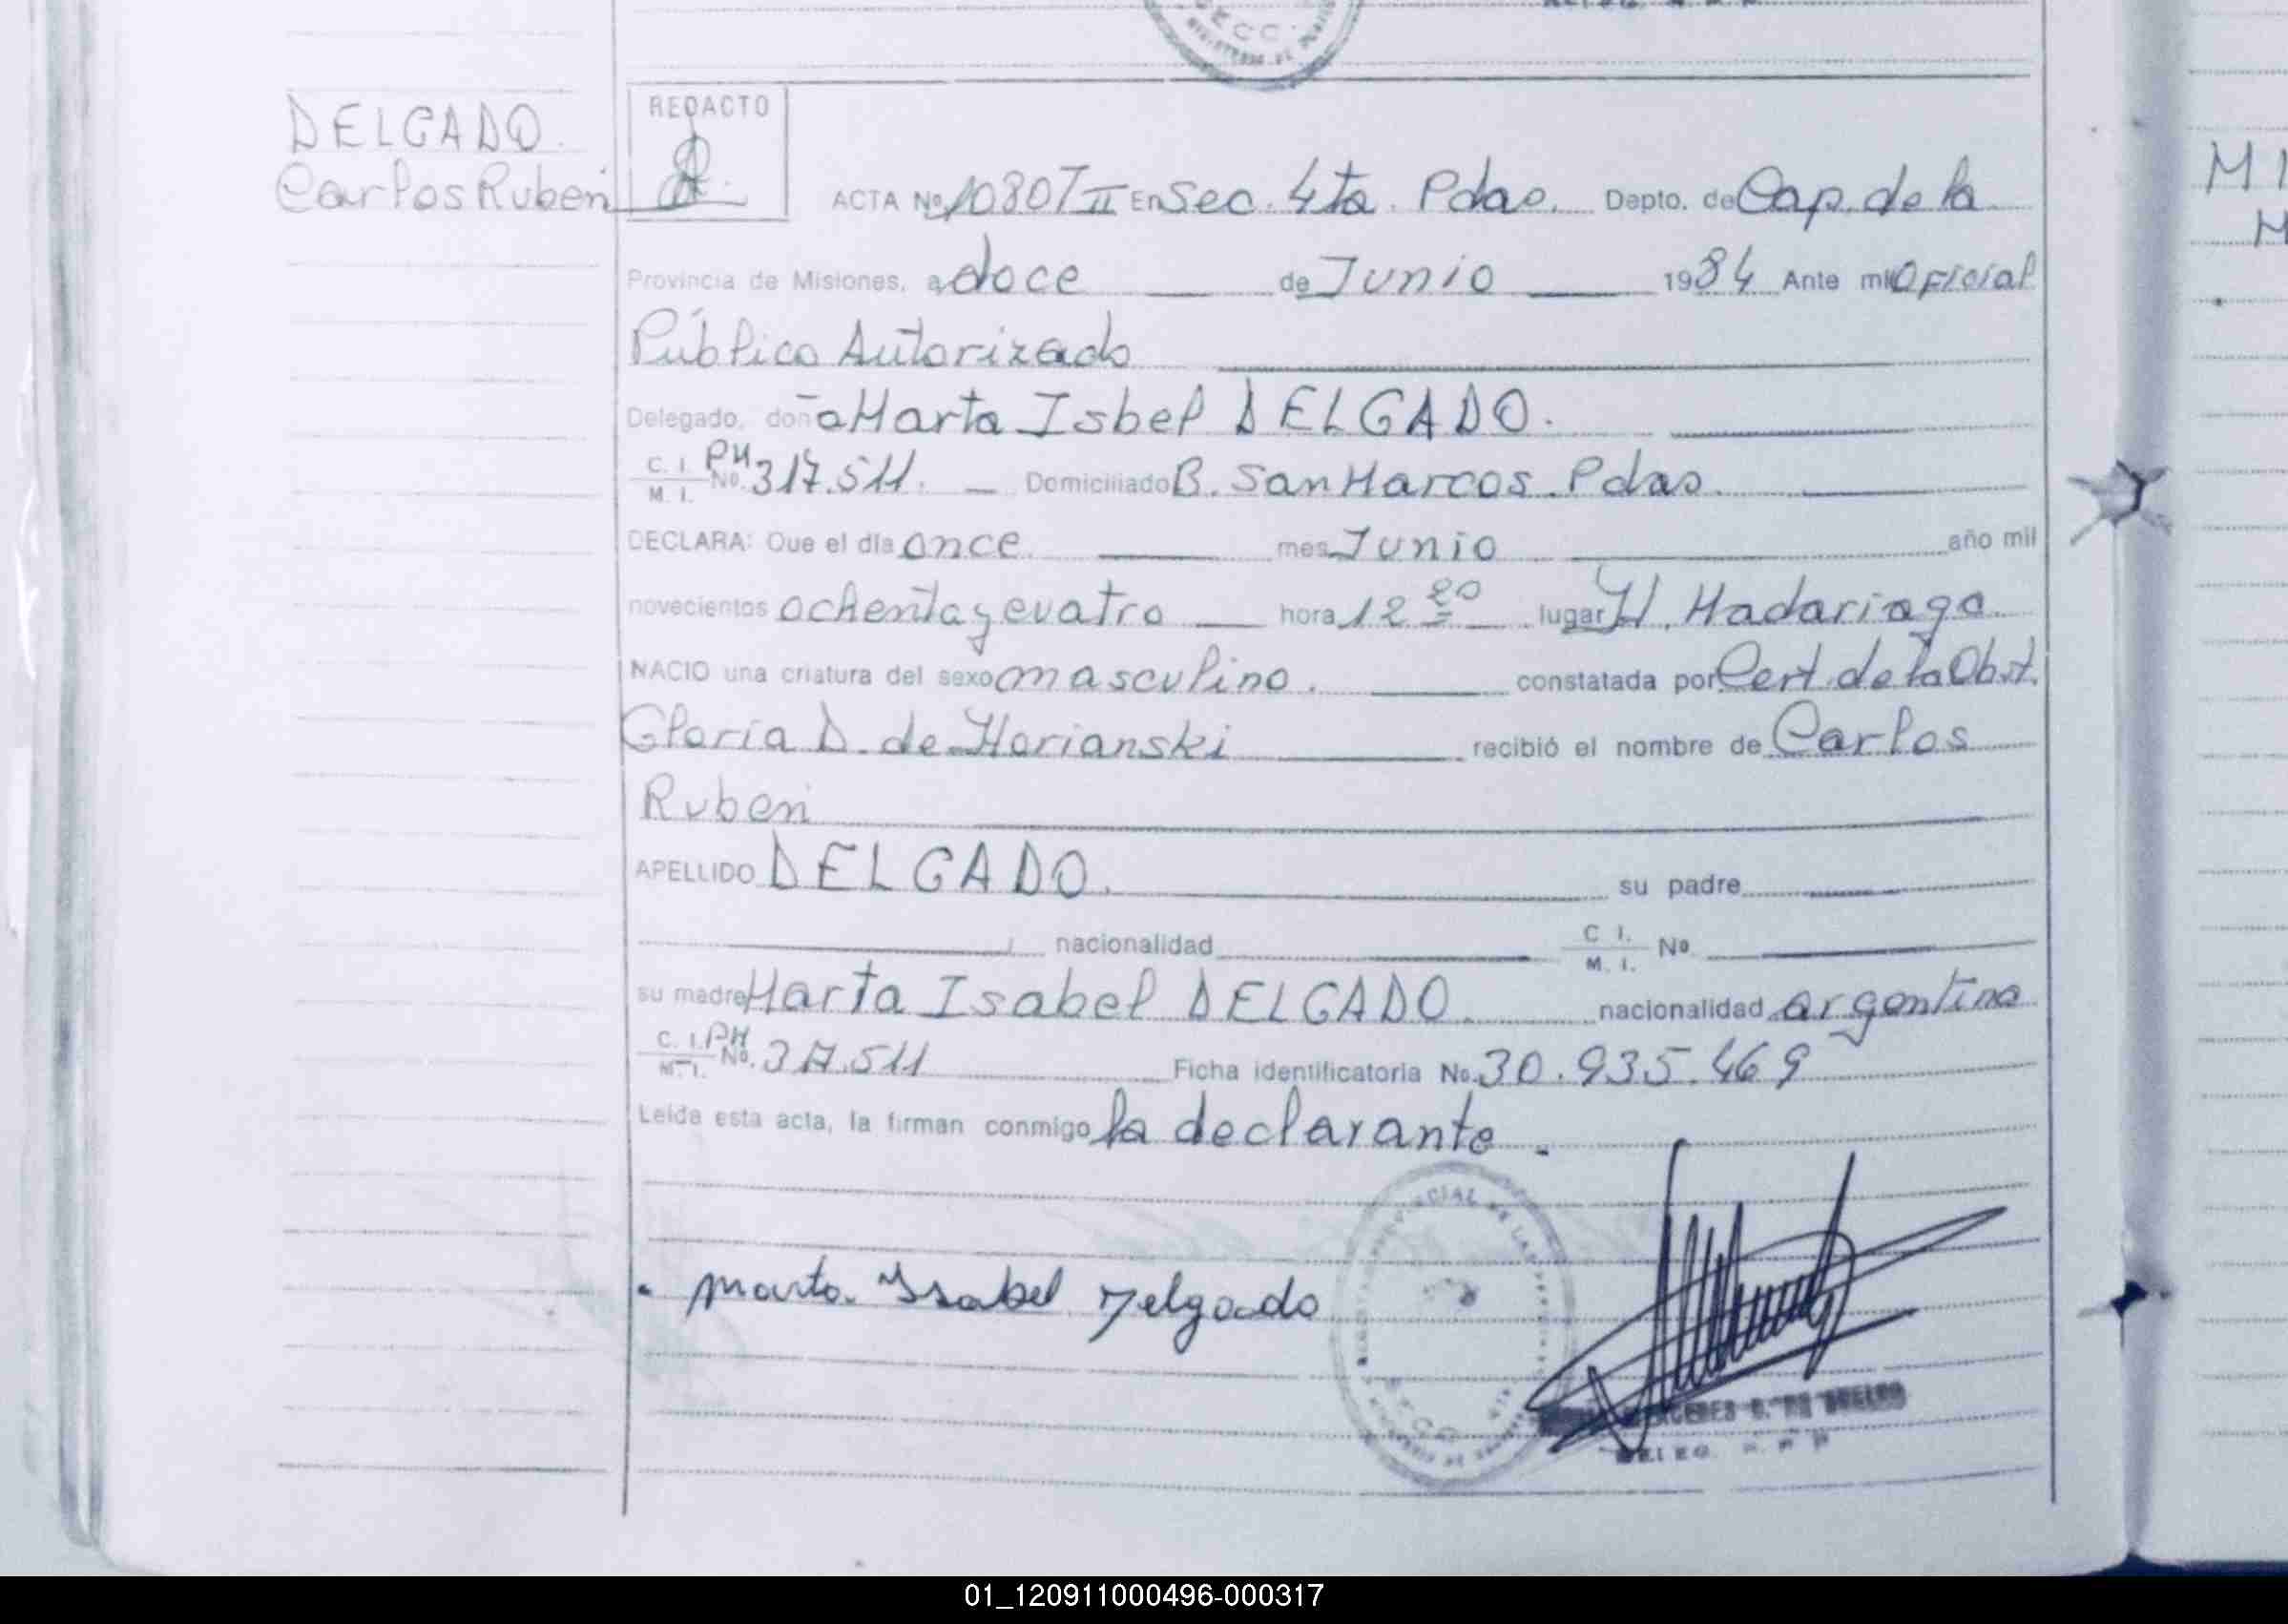 DELGADO.
Carlos Ruben
REDACTO
ACTA No 1080 T II En Sec. 4ta. Pdas. Depto. de Cap. de la
Provincia de Misiones, a doce de Junio 1984 Ante mi Oficial
Público Autorizado
Delegado, doña Marta Isbel DELGADO.
C. I. M. I. No. PM 317.511. Domiciliado B. San Marcos. Pdas.
DECLARA: Que el día once mes Junio año mil
novecientos ochenta y cuatro hora 12 20 lugar H. Madariaga.
NACIO una criatura del sexo masculino. constatada por Cert. de la Obst.
Gloria D. de Morianski recibió el nombre de Carlos
Ruben
APELLIDO DELGADO. su padre
nacionalidad C I. M. I. No
su madre Marta Isabel DELGADO. nacionalidad argentina
C. I. M. I. No. PM 317.511 Ficha identificatoria No. 30.935.469
Leída esta acta, la firman conmigo la declarante.
Marta Isabel Delgado
01_120911000496-000317